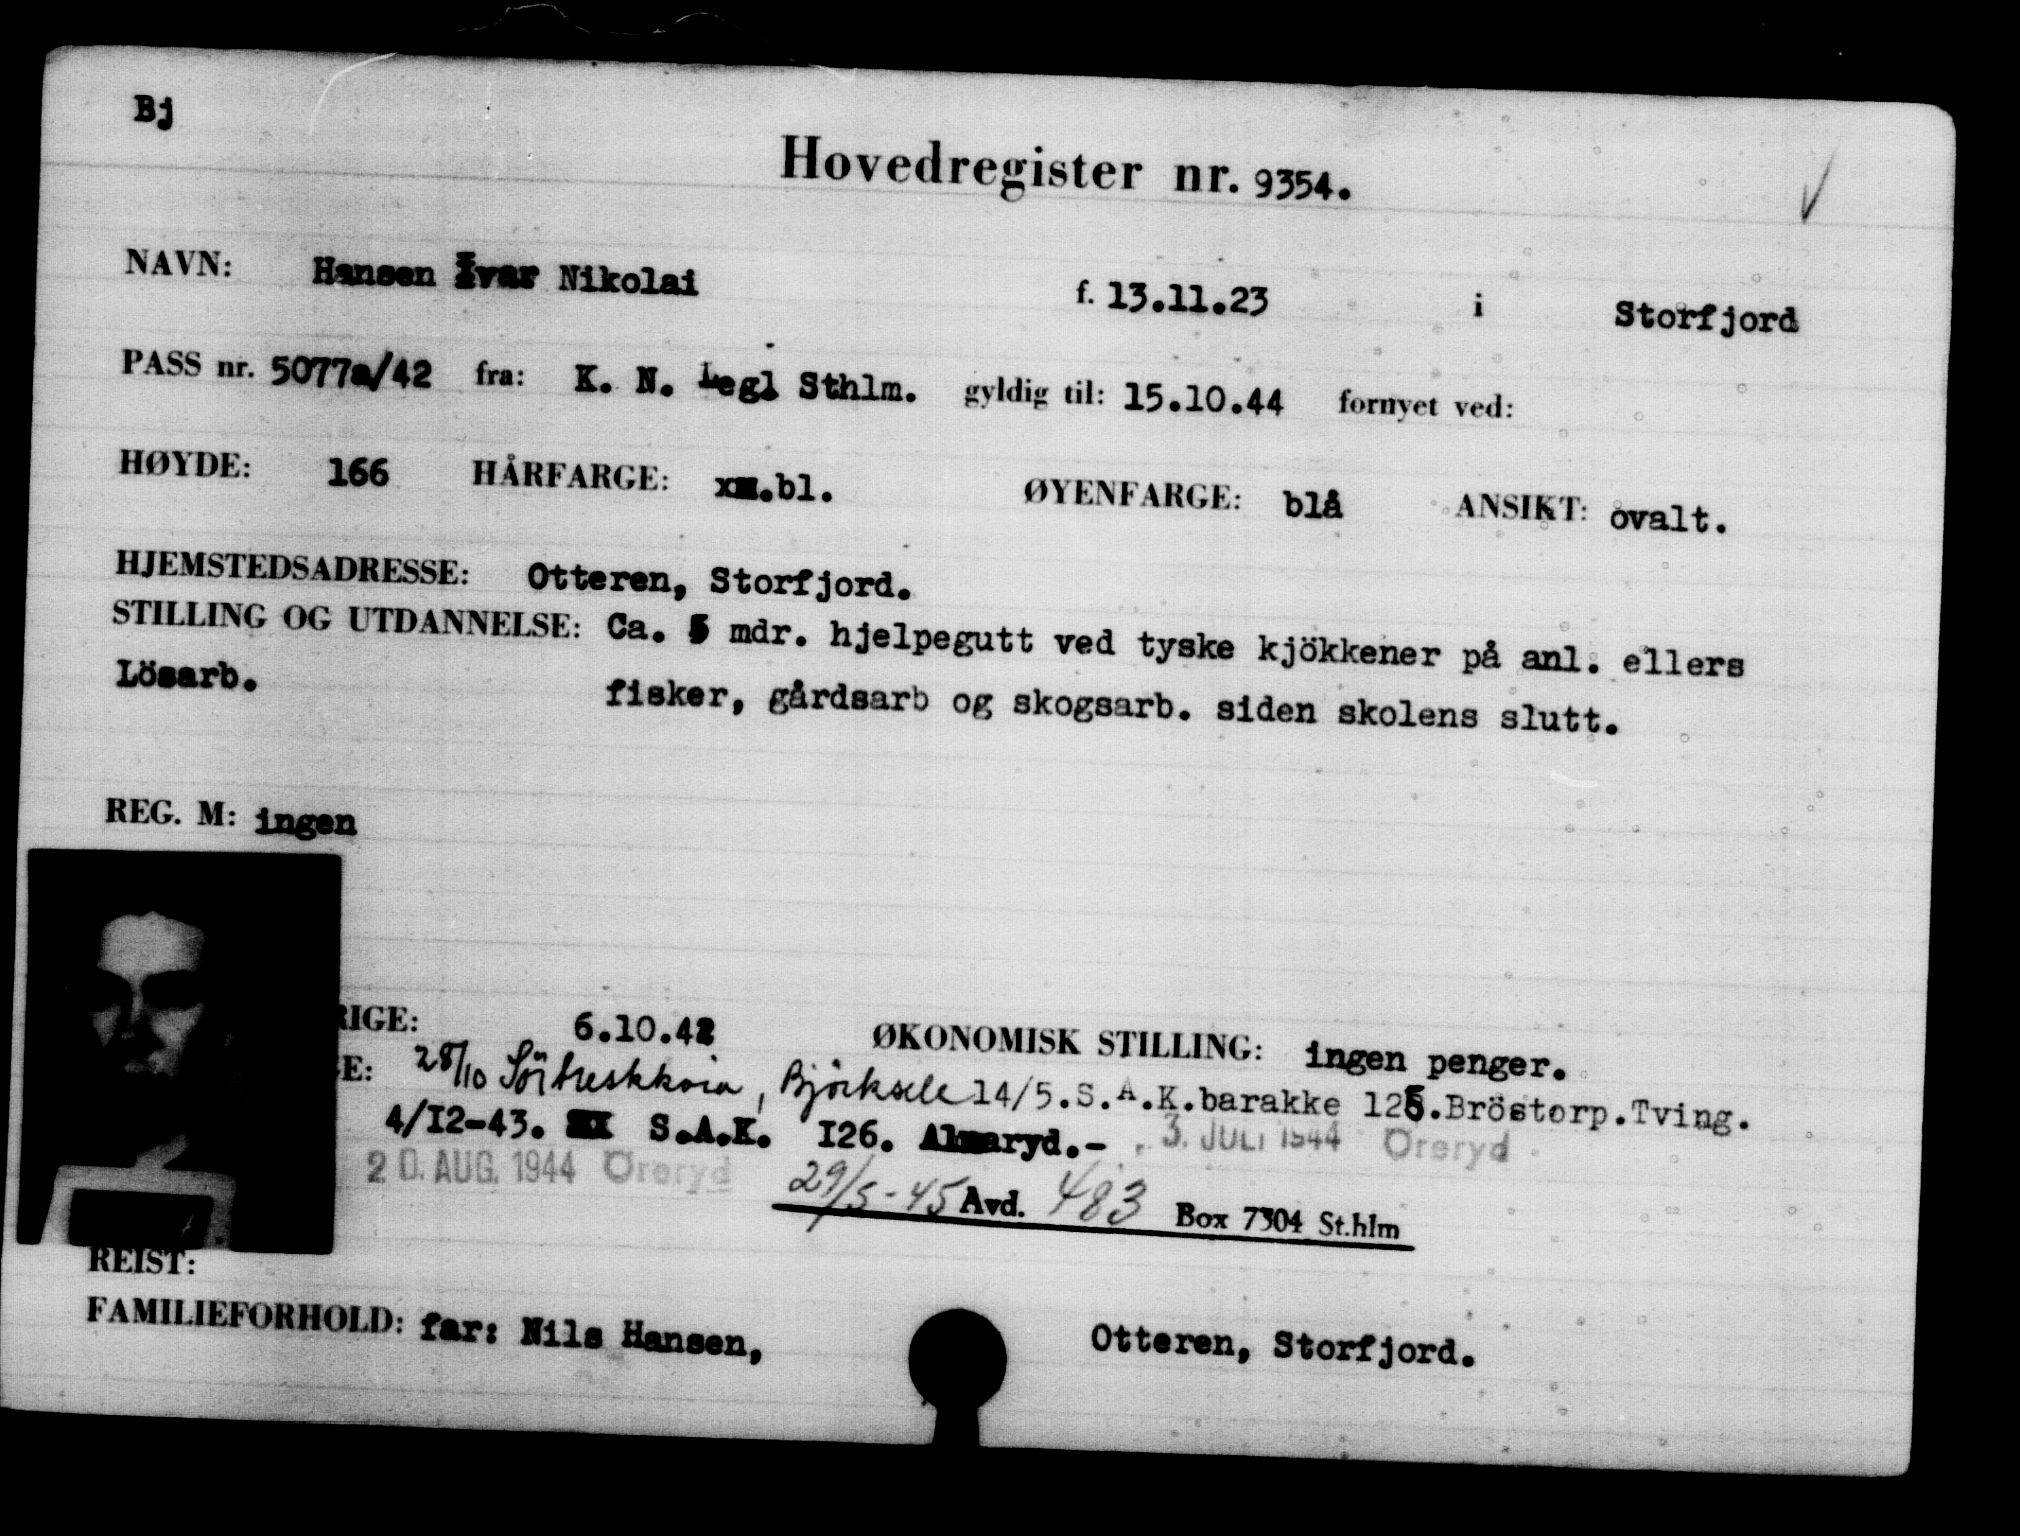 Bj
Hovedregister nr. 9354.
NAVN: Hansen Ivar Nikolai f. 13.11.23 i Storfjord
PASS nr. 5077a/42 fra: K. N. Legl Sthlm. gyldig til: 15.10.44 fornyet ved:
HØYDE: 166 HÅRFARGE: .bl. ØYENFARGE: blå ANSIKT: ovalt.
HJEMSTEDSADRESSE: Otteren, Storfjord.
STILLING OG UTDANNELSE: Ca. 5 mdr. hjelpegutt ved tyske kjökkener på anl. ellers
Lösarb. fisker, gårdsarb og skogsarb. siden skolens slutt.
REG. M: ingen
RIGE: 6.10.42 ØKONOMISK STILLING: ingen penger.
E: 28/10 , Björksele 14/5.S.A.K.barakke 125.Bröstorp.Tving.
4/I2-43. S.A.K. I26. Almaryd.- 3. JULI 1944 Öreryd
20. AUG. 1944 Öreryd
29/5-45 Avd. 483 Box 7304 St.hlm
REIST:
FAMILIEFORHOLD: far: Nils Hansen, Otteren, Storfjord.